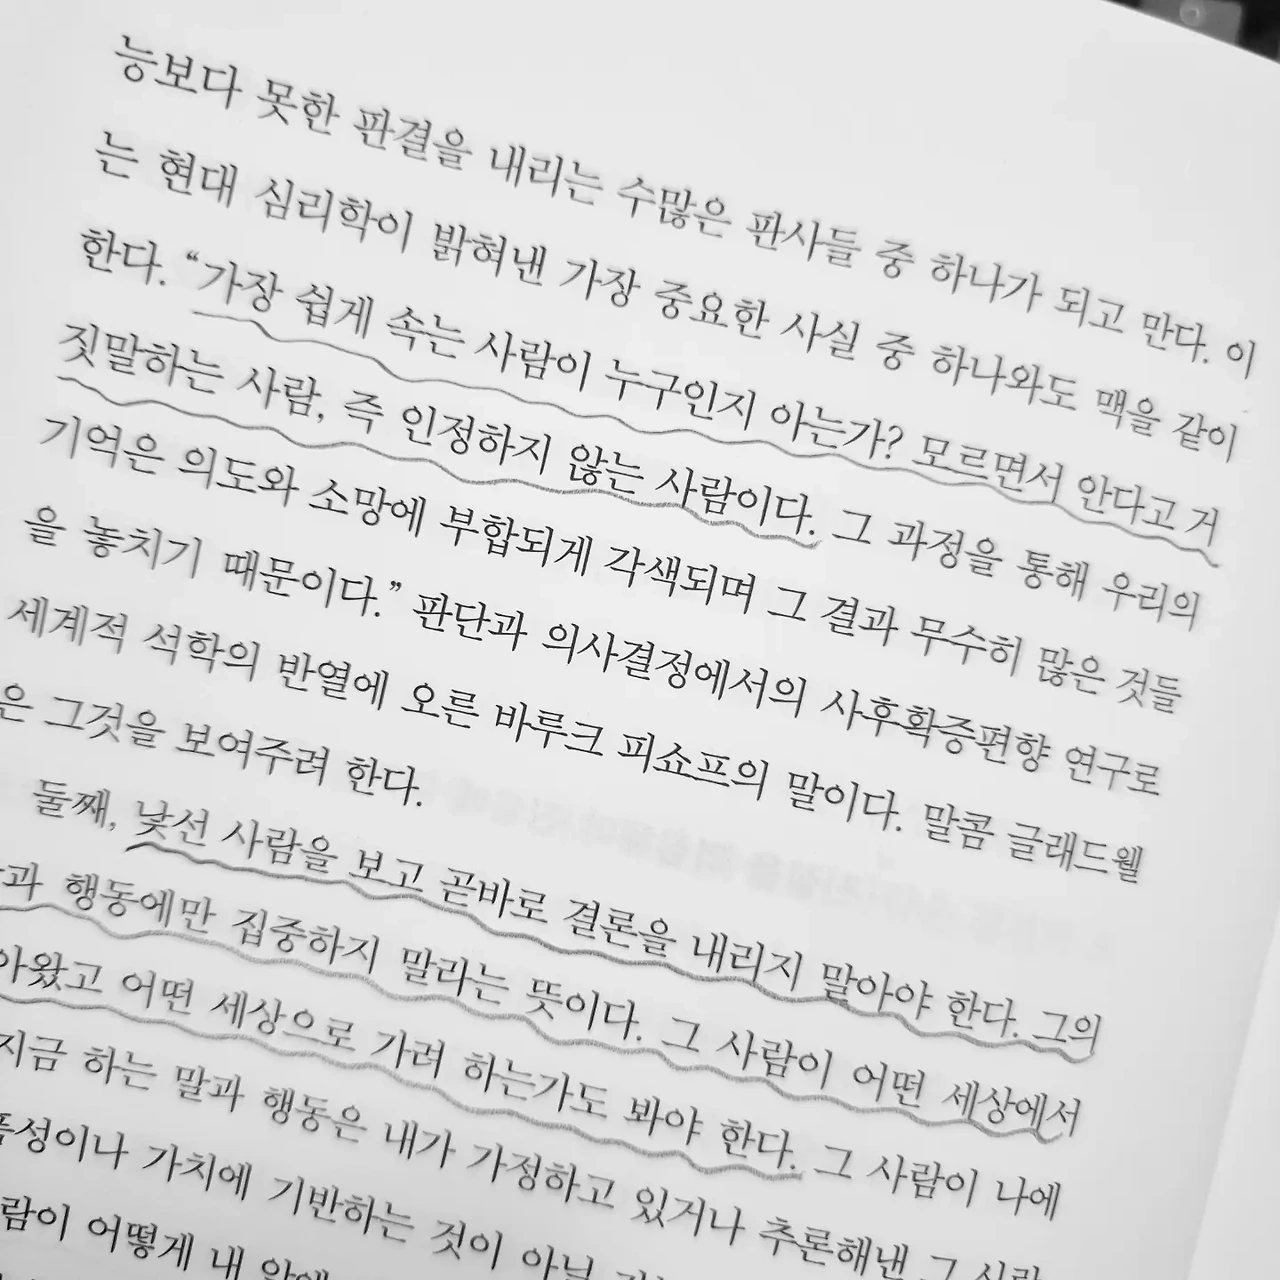 능보다 못한 판결을 내리는 수많은 판사들 중 하나가 되고 만다. 이
는 현대 심리학이 밝혀낸 가장 중요한 사실 중 하나와도 맥을 같이
한다. “가장 쉽게 속는 사람이 누구인지 아는가? 모르면서 안다고 거
짓말하는 사람, 즉 인정하지 않는 사람이다. 그 과정을 통해 우리의
기억은 의도와 소망에 부합되게 각색되며 그 결과 무수히 많은 것들
을 놓치기 때문이다.” 판단과 의사결정에서의 사후확증편향 연구로
세계적 석학의 반열에 오른 바루크 피쇼프의 말이다. 말콤 글래드웰
은 그것을 보여주려 한다.
둘째, 낯선 사람을 보고 곧바로 결론을 내리지 말아야 한다. 그의
과 행동에만 집중하지 말라는 뜻이다. 그 사람이 어떤 세상에서
아왔고 어떤 세상으로 가려 하는가도 봐야 한다. 그 사람이 나에
지금 하는 말과 행동은 내가 가정하고 있거나 추론해낸 그
품성이나 가치에 기반하는 것이 아닐
람이 어떻게 내